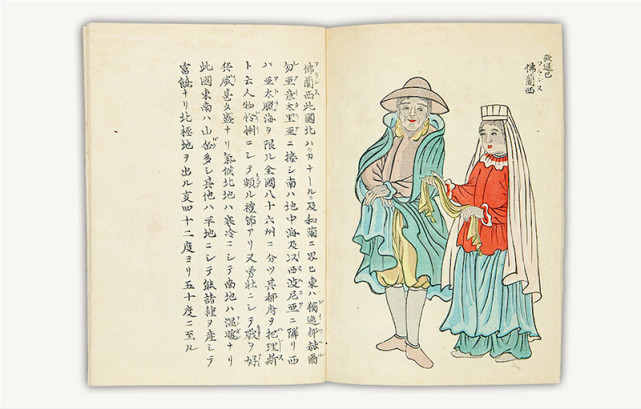 歐邏巴
佛蘭西
フランス
佛蘭西此國北ハカナール及和蘭ニ界ヒ東ハ獨逸
亞意太里亞ニ接シ南ハ地中海及以西波尼亞ニ隣リ西
ハ亞太臘海ヲ限ル全國八十六州ニ分ツ其都府ヲ把理斯
ト云人物怜悧ニシテ頗ル禮節アリ又勇壮ニシテ戰ヲ好
兵威甚タ盛ナリ氣候北地ハ寒冷ニシテ南地ハ温暖ナリ
此國東南ハ山多シ其他ハ平地ニシテ能諸種ヲ産シテ
富饒ナリ北極地ヲ出ル四十二度ヨリ五十度ニ至ル